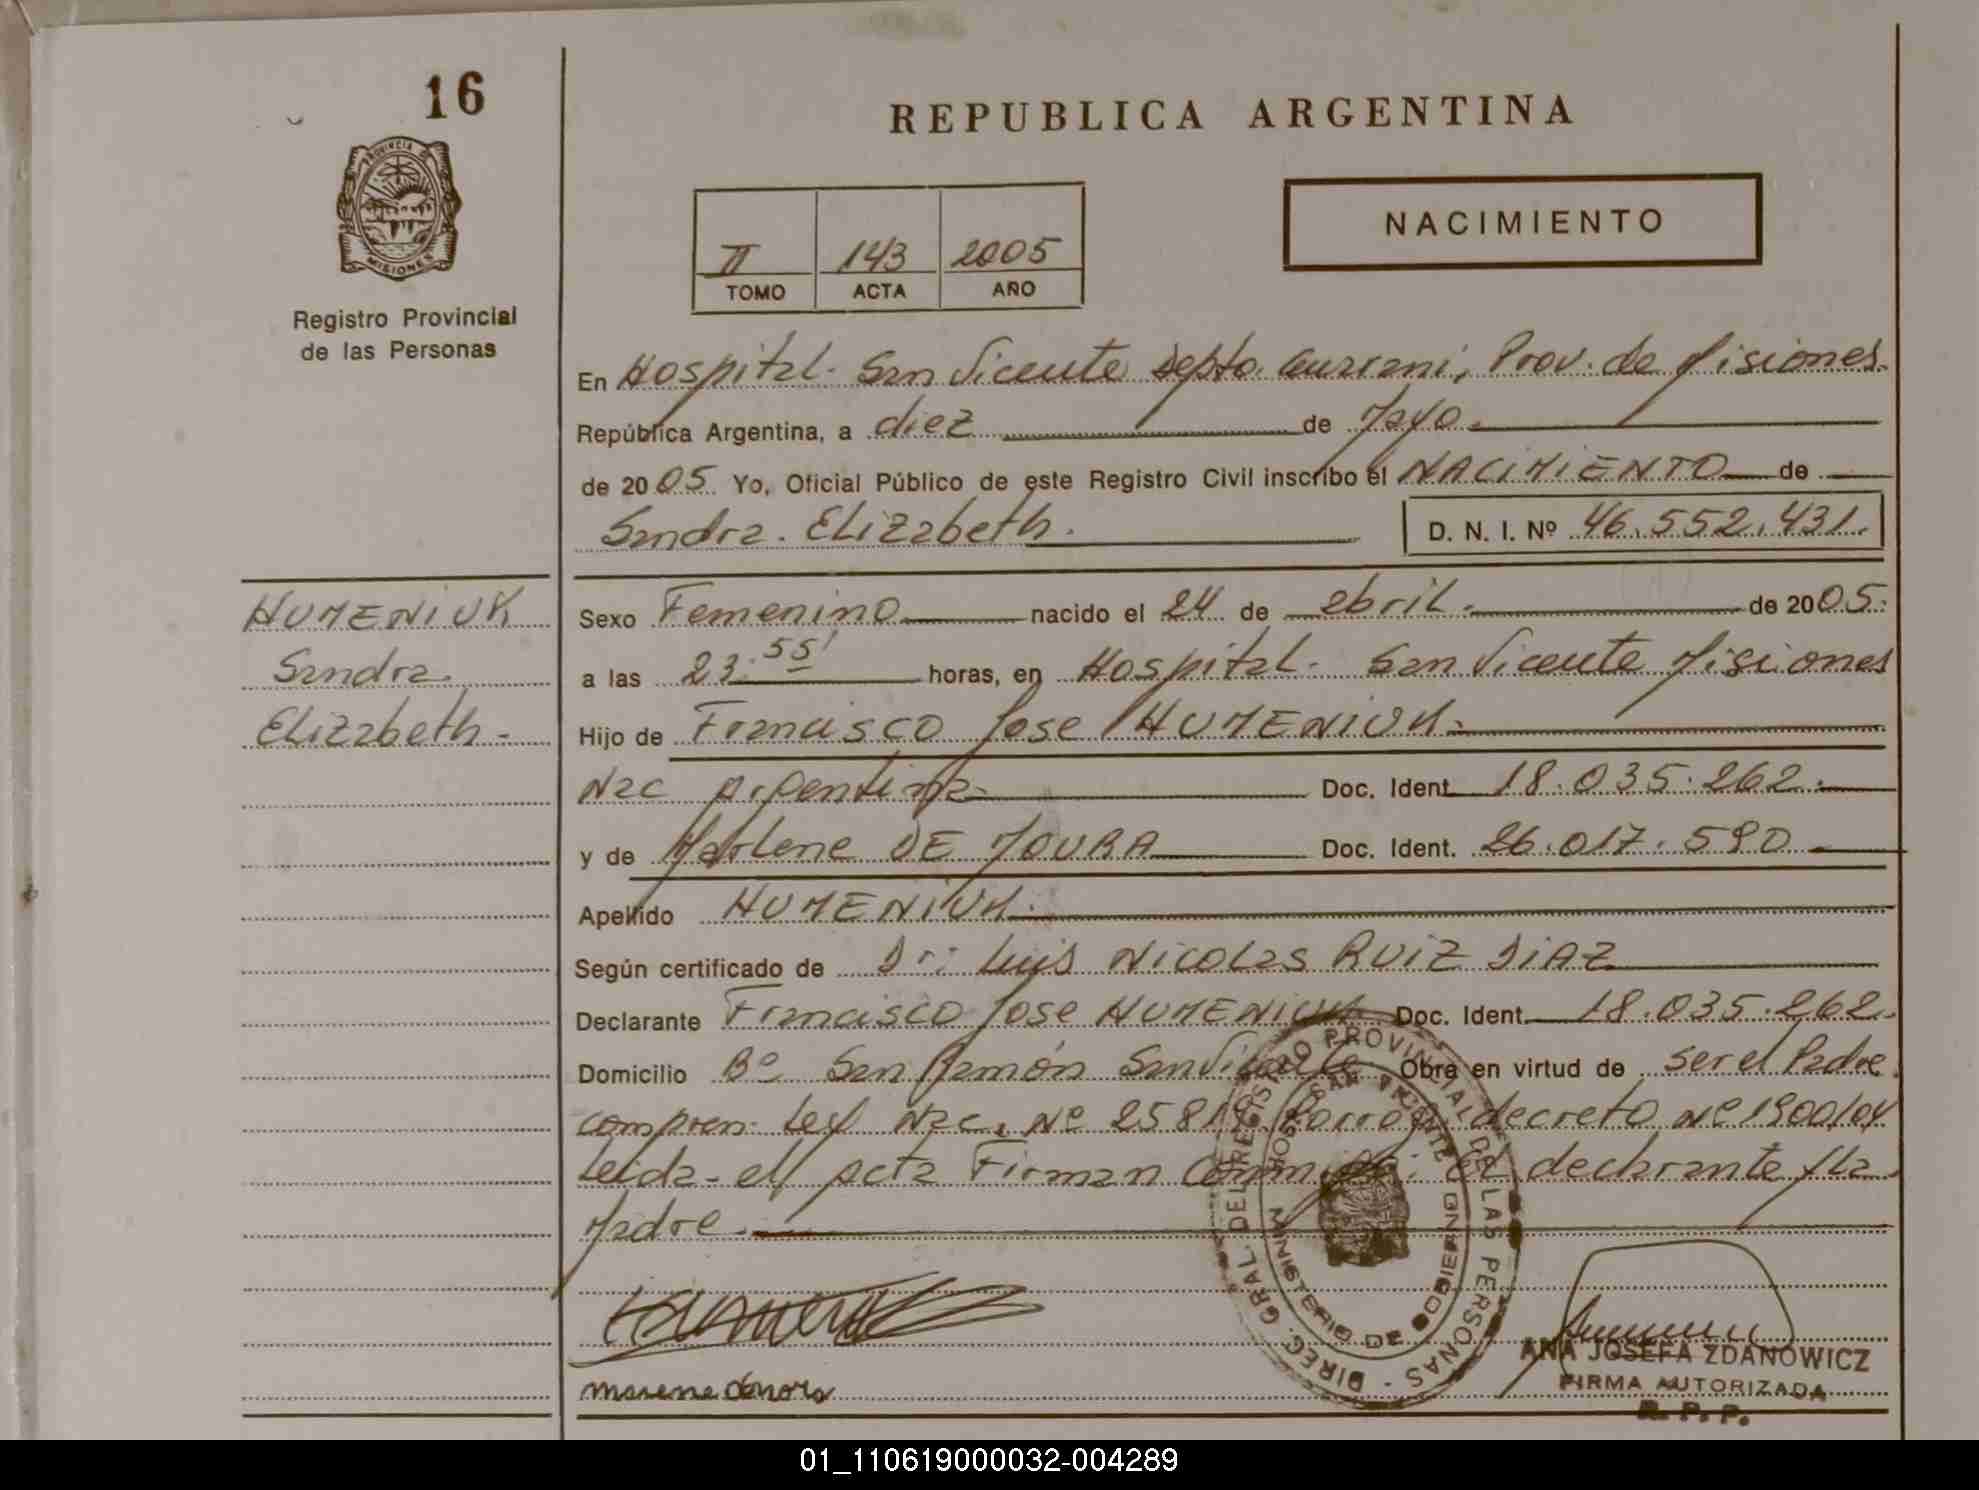 16
REPUBLICA ARGENTINA
PROVINCIA DE
MISIONES
Registro Provincial
de las Personas
NACIMIENTO
II 143 2005
TOMO ACTA AÑO
En Hospital. San Vicente Depto. Guarani, Prov. de Misiones.
República Argentina, a diez de Mayo.
de 2005 Yo, Oficial Público de este Registro Civil inscribo el NACIMIENTO de
Sandra. Elizabeth. D. N. I. Nº 46.552.431.
HUMENIUK
Sandra.
Elizabeth.-
Sexo Femenino nacido el 24 de abril. de 2005.
a las 23.55' horas, en Hospital. San Vicente Misiones
Hijo de Francisco Jose HUMENIUK.
Nac Argentina Doc. Ident. 18.035.262.
y de Marlene DE MOURA Doc. Ident. 26.017.590
Apellido HUMENIUK.
Según certificado de Dr: Luis Nicolas RUIZ DIAZ
Declarante Francisco Jose HUMENIUK Doc. Ident. 18.035.262.
Domicilio Bº San Ramón San Vicente Obra en virtud de ser el Padre.
compren. Ley Nac. Nº 25819 decreto Nº 1900/04
Leida el acta Firman Conmigo: el declarante y la
Madre.
DIREC. GRAL. DEL REGISTRO PROVINCIAL DE LAS PERSONAS
MINISTERIO DE GOBIERNO
HOSP. SAN VICENTE
ANA JOSEFA ZDANOWICZ
FIRMA AUTORIZADA
R. P. P.
01_110619000032-004289